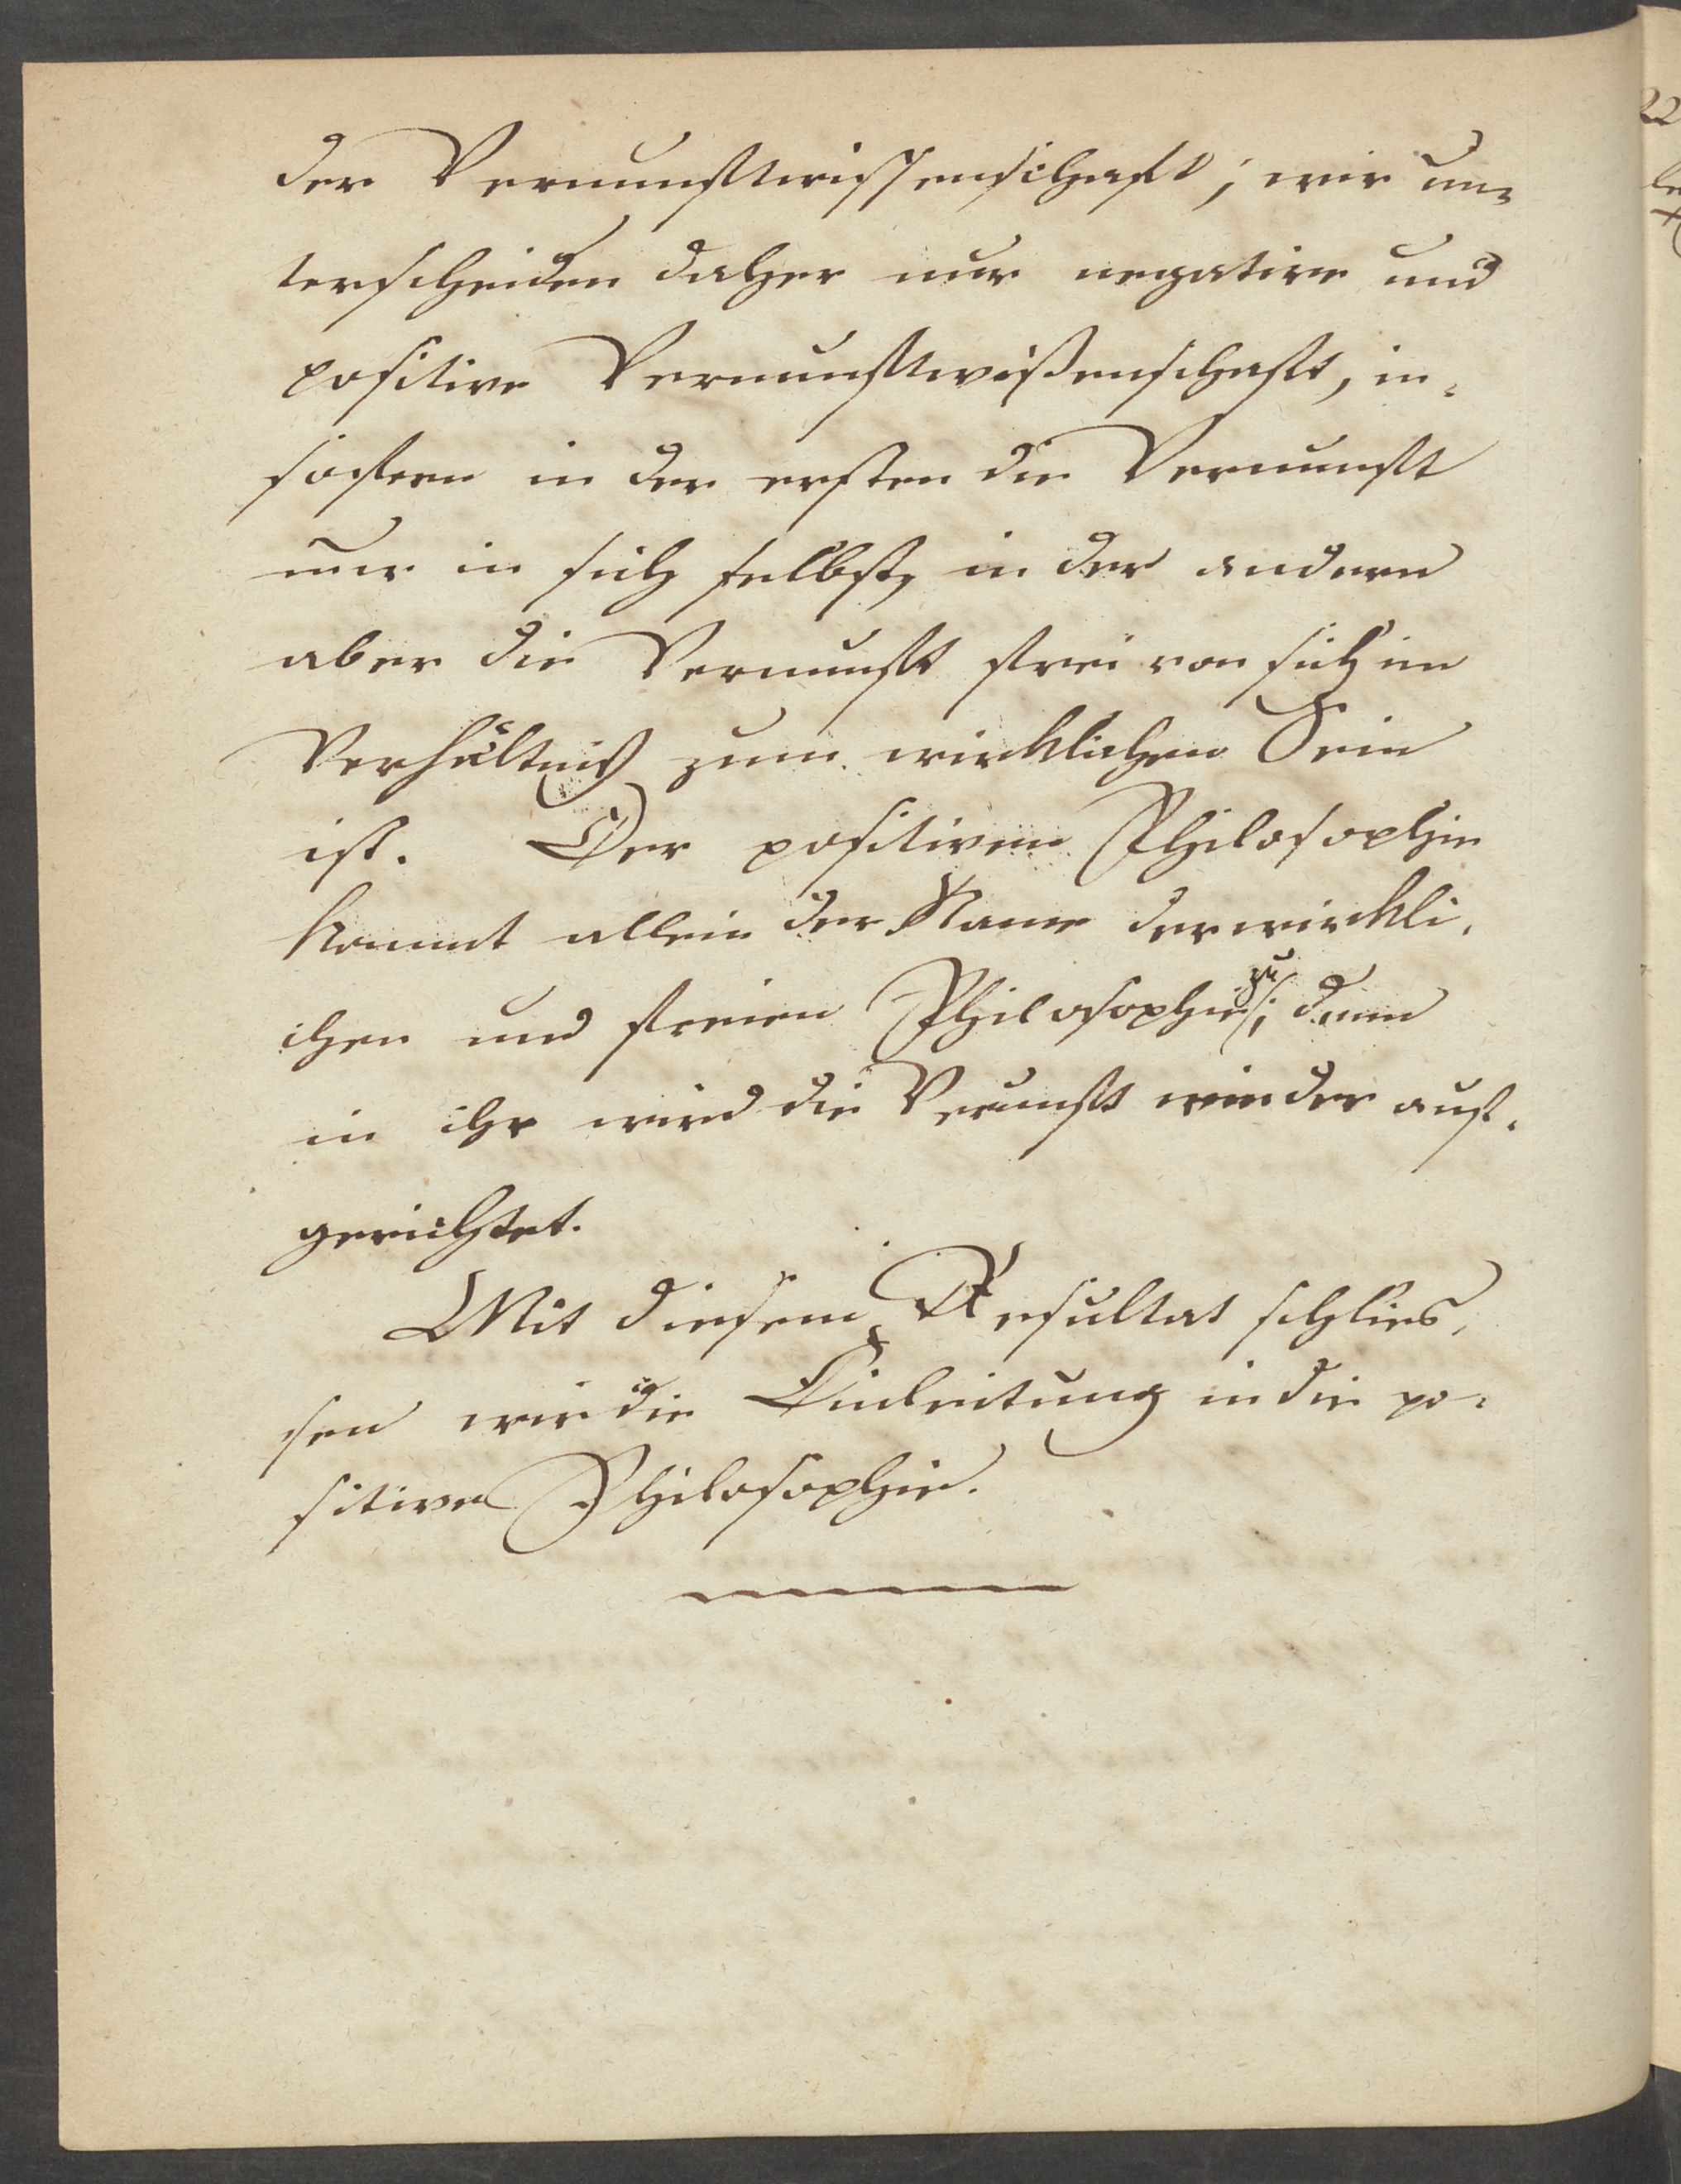 der Vernunftwissenschaft; wir un-
terscheiden daher nur negative und
positive Vernunftwißenschaft, in-
sofern in der ersten die Vernunft
nur in sich selbst, in der andern
aber die Vernunft frei von sich im
Verhältniß zum wirklichen Sein
ist. Der positiven Philosophie
kommt allein der Name der wirkli-
chen und freien Philosophie zu; denn
in ihr wird die Vernunft wieder auf-
gerichtet.
Mit diesem Resultat schlies-
sen wir die Einleitung in die po-
sitive Philosophie.